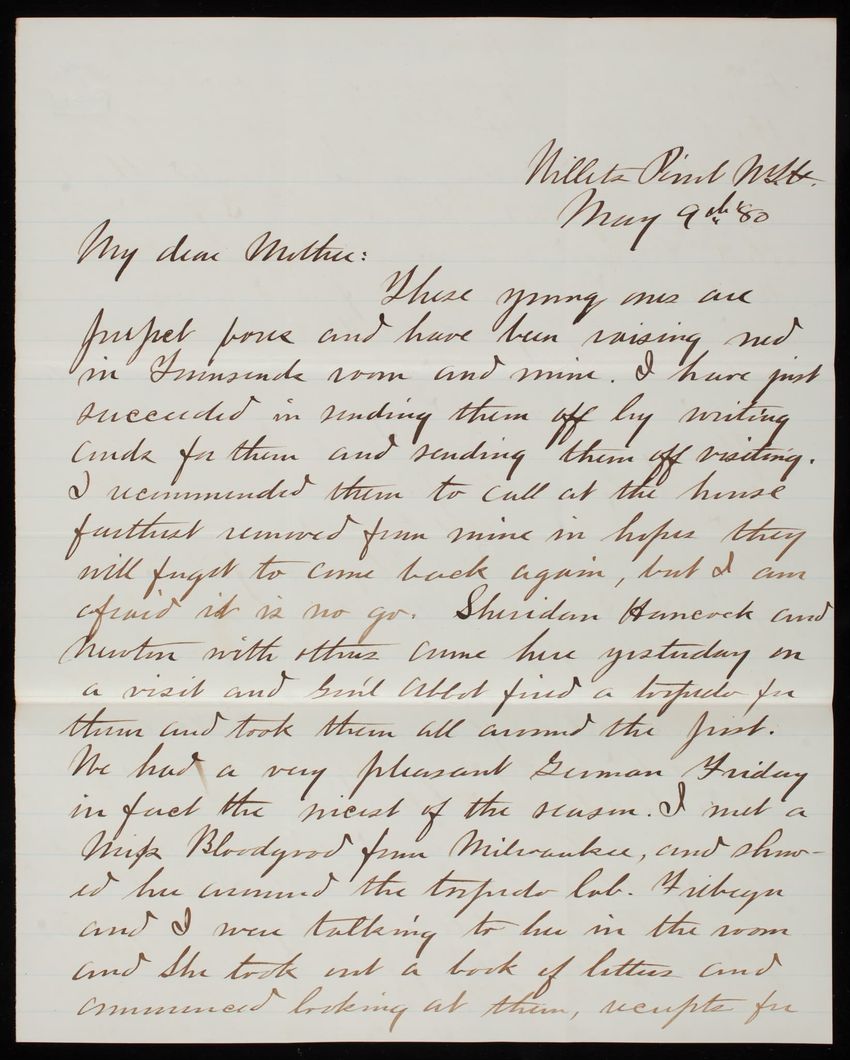 Willets Point N.Y.H.
May 9th '80
My dear Mother:
These young ones are
perfect bores and have been raising ned
in Townsends room and mine. I have just
succeeded in sending them off by writing
cards for them and sending them off visiting.
I recommended them to call at the house
farthest removed from mine in hopes they
will forget to come back again, but I am
afraid it is no go. Sheridan Hancock and
Newton with others came here yesterday on
a visit and Gen'l Abbot fired a torpedo for
them and took them all around the post.
We had a very pleasant German Friday
in fact the nicest of the season. I met a
Miss Bloodgood from Milwaukee, and show-
ed her around the torpedo lab. Fiebeger
and I were talking to her in the room
and she took out a book of letters and
commenced looking at them, receipts for